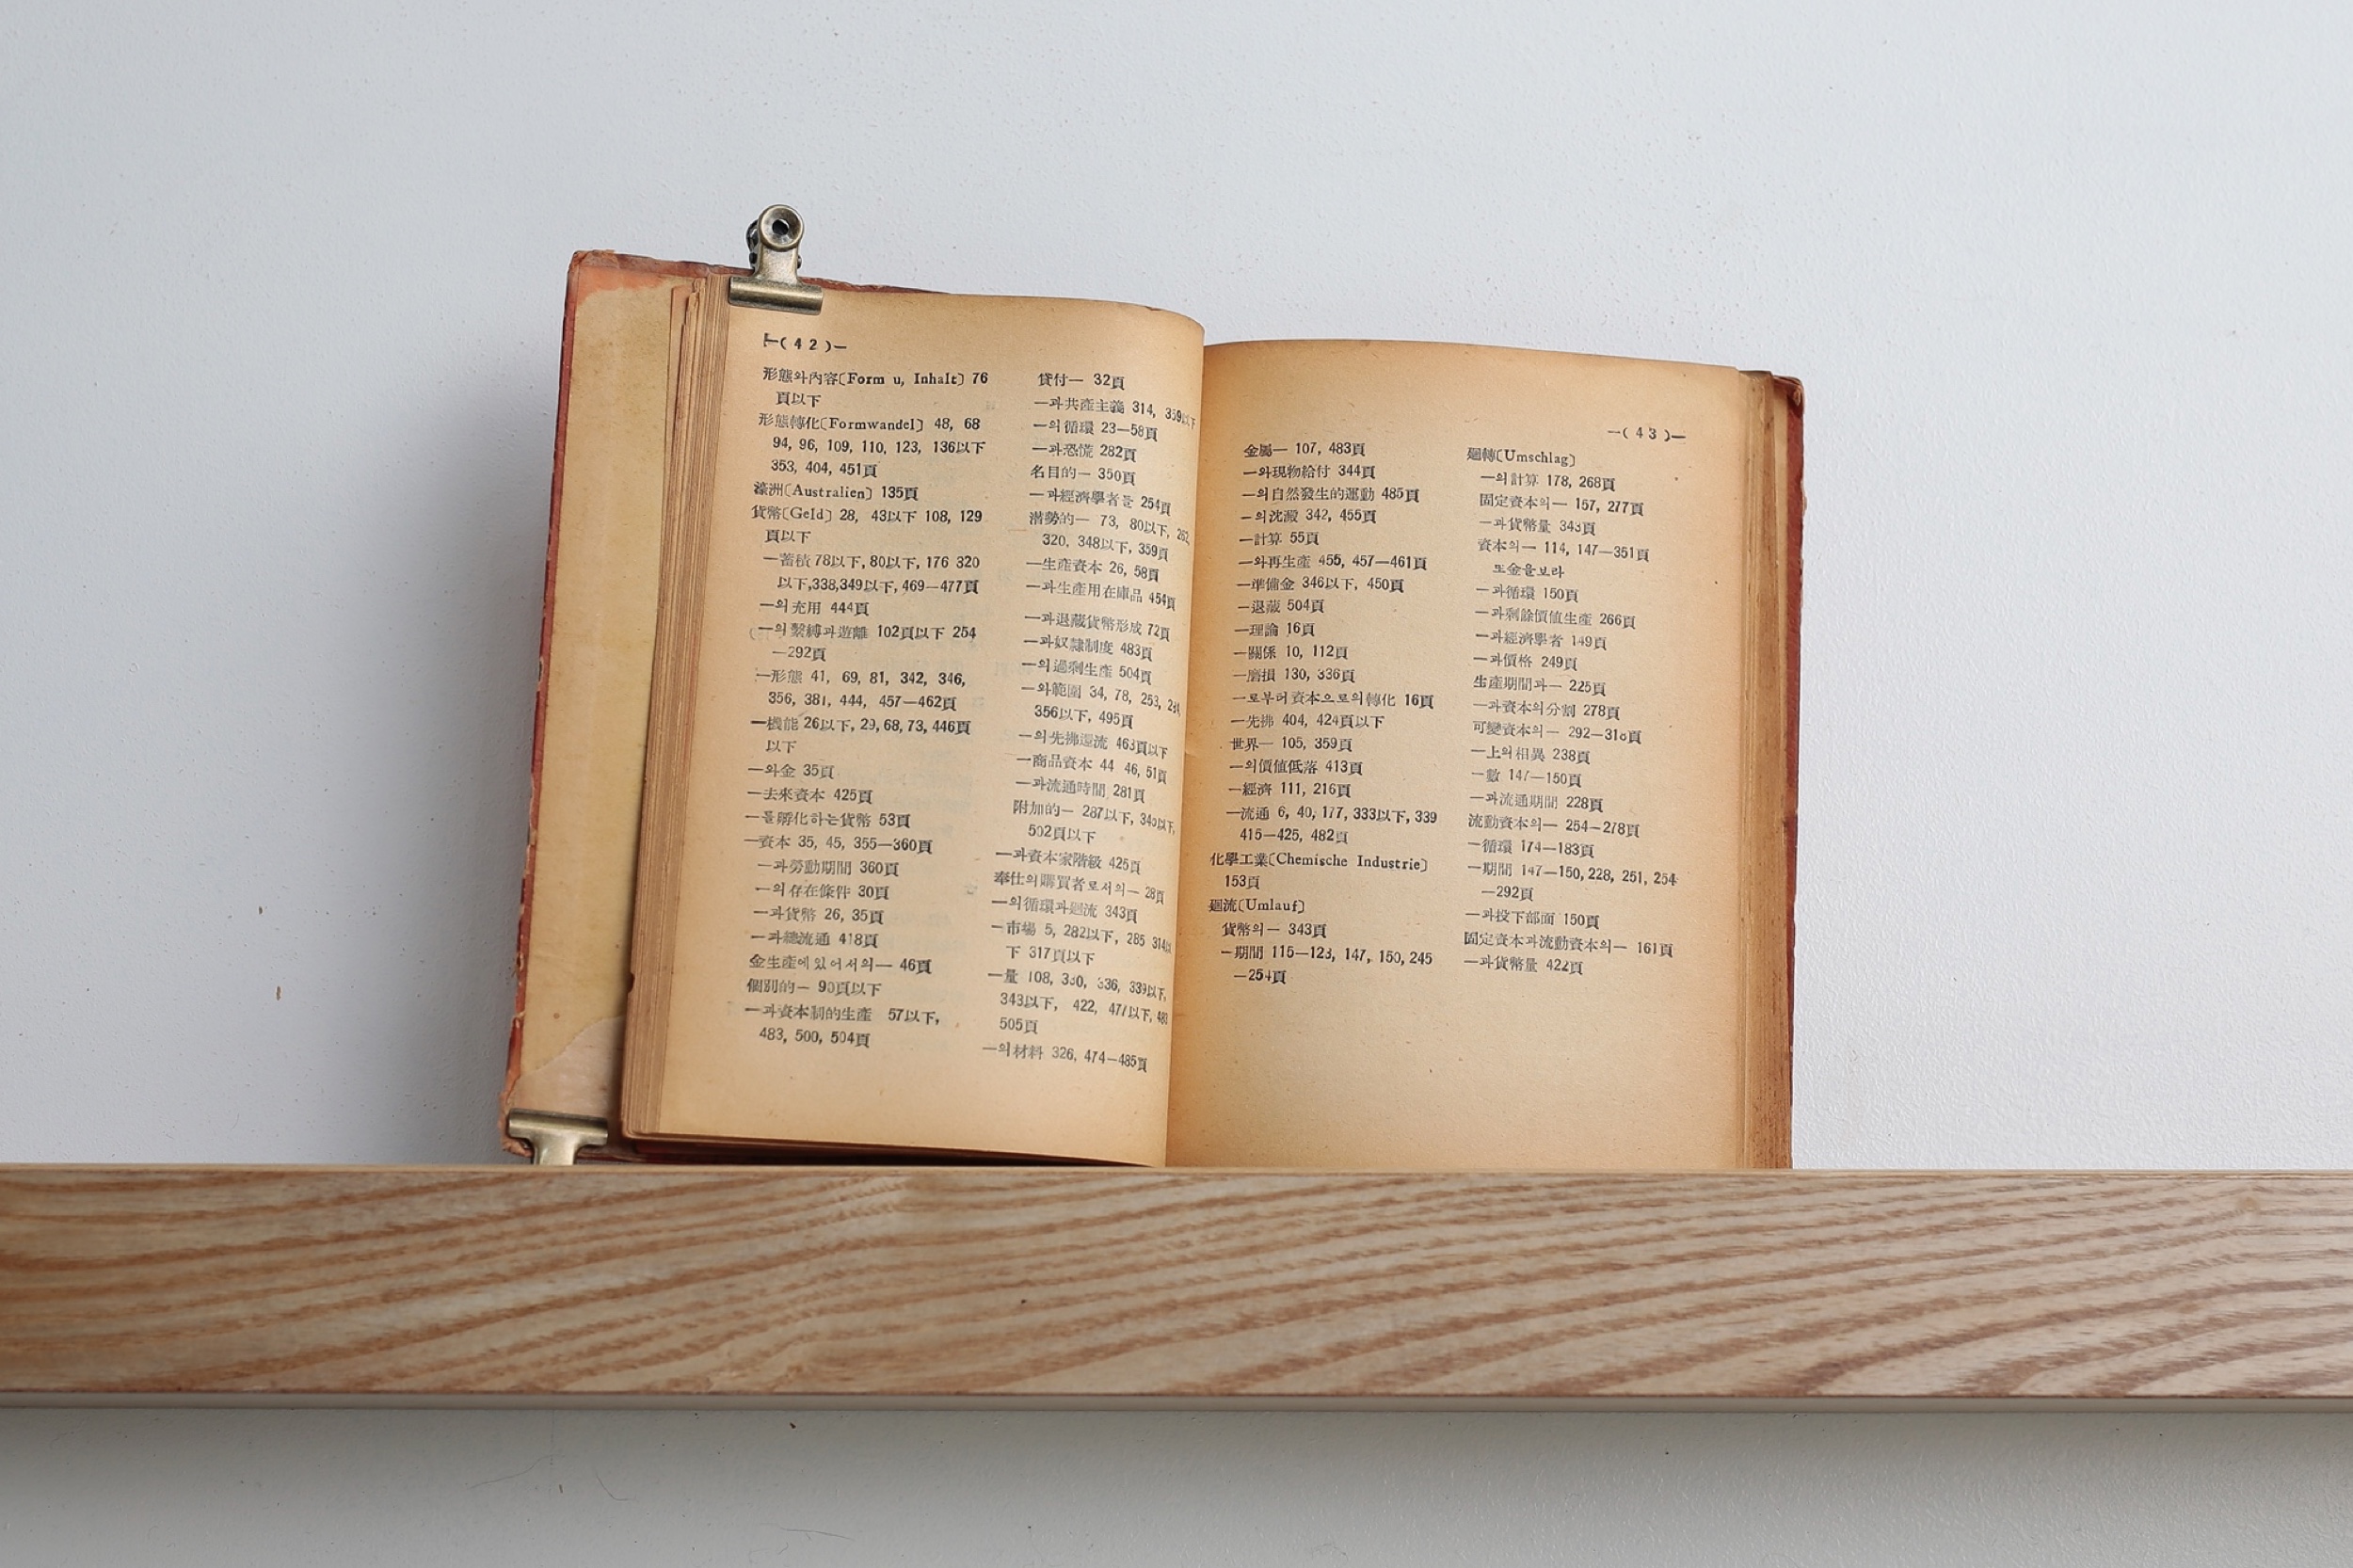 —(42)—
形態와內容〔Form u, Inhalt〕 76
頁以下
形態轉化〔Formwandel〕 48, 68
94, 96, 109, 110, 123, 136以下
353, 404, 451頁
濠洲〔Australien〕 135頁
貨幣〔Geld〕 28, 43以下 108, 129
頁以下
—蓄積 78以下, 80以下, 176 320
以下, 338, 349以下, 469—477頁
—의充用 444頁
—의繫縛과遊離 102頁以下 254
—292頁
—形態 41, 69, 81, 342, 346,
356, 381, 444, 457—462頁
—機能 26以下, 29, 68, 73, 446頁
以下
—와金 35頁
—去來資本 425頁
—를孵化하는貨幣 53頁
—資本 35, 45, 355—360頁
—과勞動期間 360頁
—의存在條件 30頁
—과貨幣 26, 35頁
—과總流通 418頁
金生產에있어서의— 46頁
個別的— 90頁以下
—과資本制的生產 57以下,
483, 500, 504頁
貸付— 32頁
—과共產主義 314, 359以下
—의循環 23—58頁
—과恐慌 282頁
名目的— 350頁
—과經濟學者들 254頁
潛勢的— 73, 80以下, 262,
320, 348以下, 359頁
—生產資本 26, 58頁
—과生產用在庫品 454頁
—과退藏貨幣形成 72頁
—과奴隸制度 483頁
—의過剩生產 504頁
—와範圍 34, 78, 253,
356以下, 495頁
—의先拂還流 463頁以下
—商品資本 44 46, 51頁
—과流通時間 281頁
附加的— 287以下,
502頁以下
—과資本家階級 425頁
奉仕의購買者로서의— 28頁
—의循環과廻流 343頁
—市場 5, 282以下, 285 314以
下 317頁以下
—量 108, 330, 336, 339以下,
343以下, 422, 477以下,
505頁
—의材料 326, 474—485頁
—(43)—
金屬— 107, 483頁
—와現物給付 344頁
—의自然發生的運動 485頁
—의沈澱 342, 455頁
—計算 55頁
—와再生產 455, 457—461頁
—準備金 346以下, 450頁
—退藏 504頁
—理論 16頁
—關係 10, 112頁
—磨損 130, 336頁
—로부터資本으로의轉化 16頁
—先拂 404, 424頁以下
世界— 105, 359頁
—의價値低落 413頁
—經濟 111, 216頁
—流通 6, 40, 177, 333以下, 339
415—425, 482頁
化學工業〔Chemische Industrie〕
153頁
廻流〔Umlauf〕
貨幣의— 343頁
—期間 115—123, 147, 150, 245
—254頁
廻轉〔Umschlag〕
—의計算 178, 268頁
固定資本의— 157, 277頁
—과貨幣量 343頁
資本의— 114, 147—351頁
또金을보라
—과循環 150頁
—과剩餘價値生產 266頁
—과經濟學者 149頁
—과價格 249頁
生產期間과— 225頁
—과資本의分割 278頁
可變資本의— 292—318頁
—上의相異 238頁
—數 147—150頁
—과流通期間 228頁
流動資本의— 254—278頁
—循環 174—183頁
—期間 147—150, 228, 251, 254
—292頁
—과投下部面 150頁
固定資本과流動資本의— 161頁
—과貨幣量 422頁